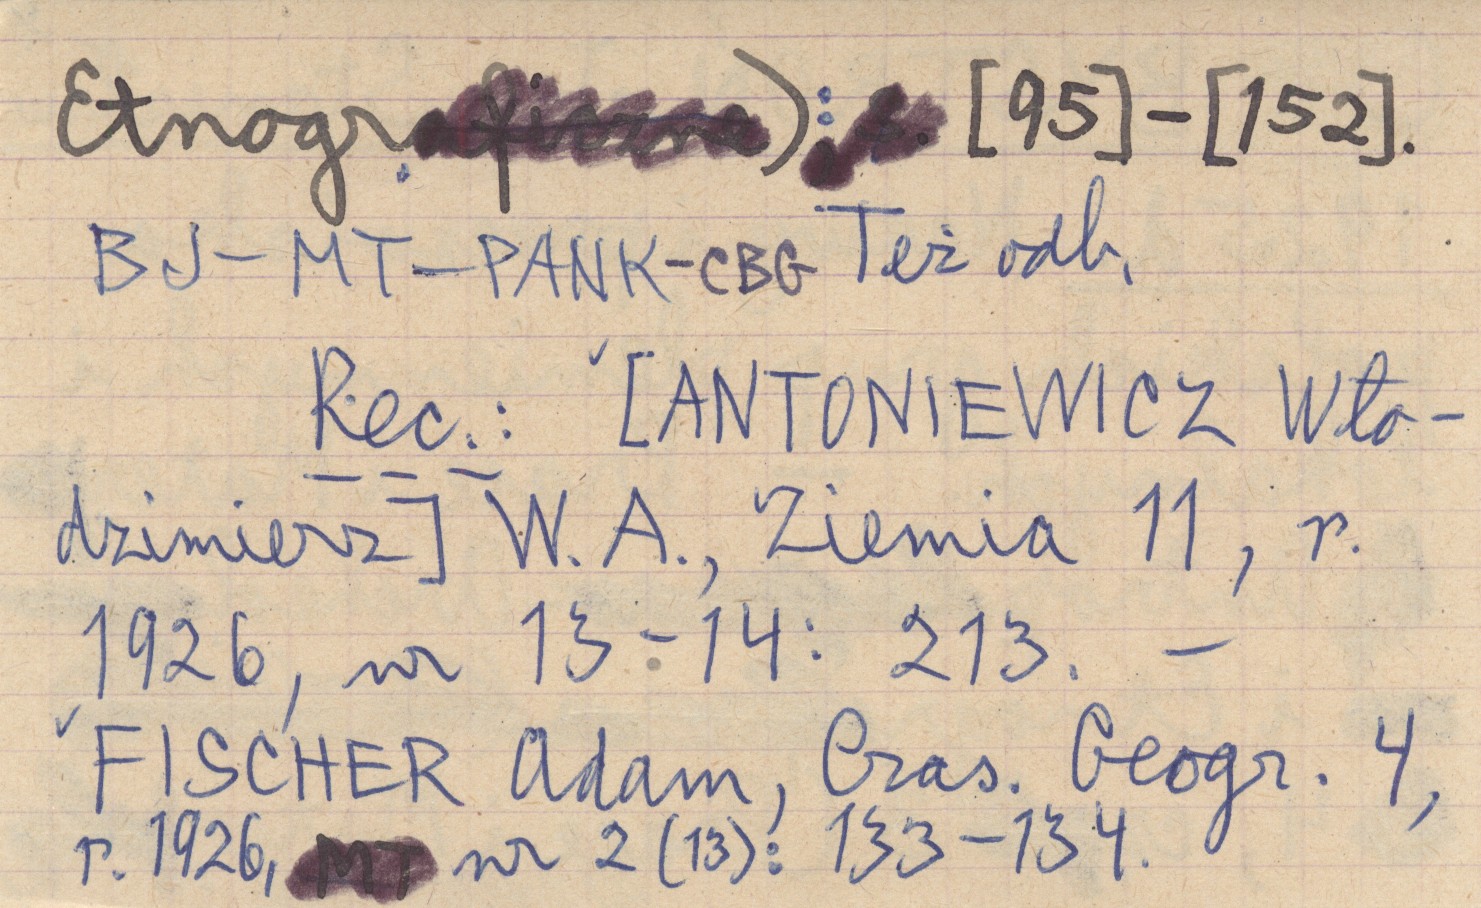 Etnogr.): [95]-[152].
BJ-MT-PANK-CBG Też odb.
Rec.: [ANTONIEWICZ Wło-
dzimierz] W.A., Ziemia 11, r.
1926, nr 13-14: 213. -
FISCHER Adam, Czas. Geogr. 4,
r. 1926, nr 2 (13): 133-134.